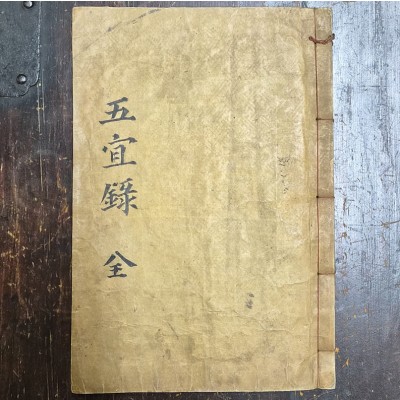 五宜錄 全